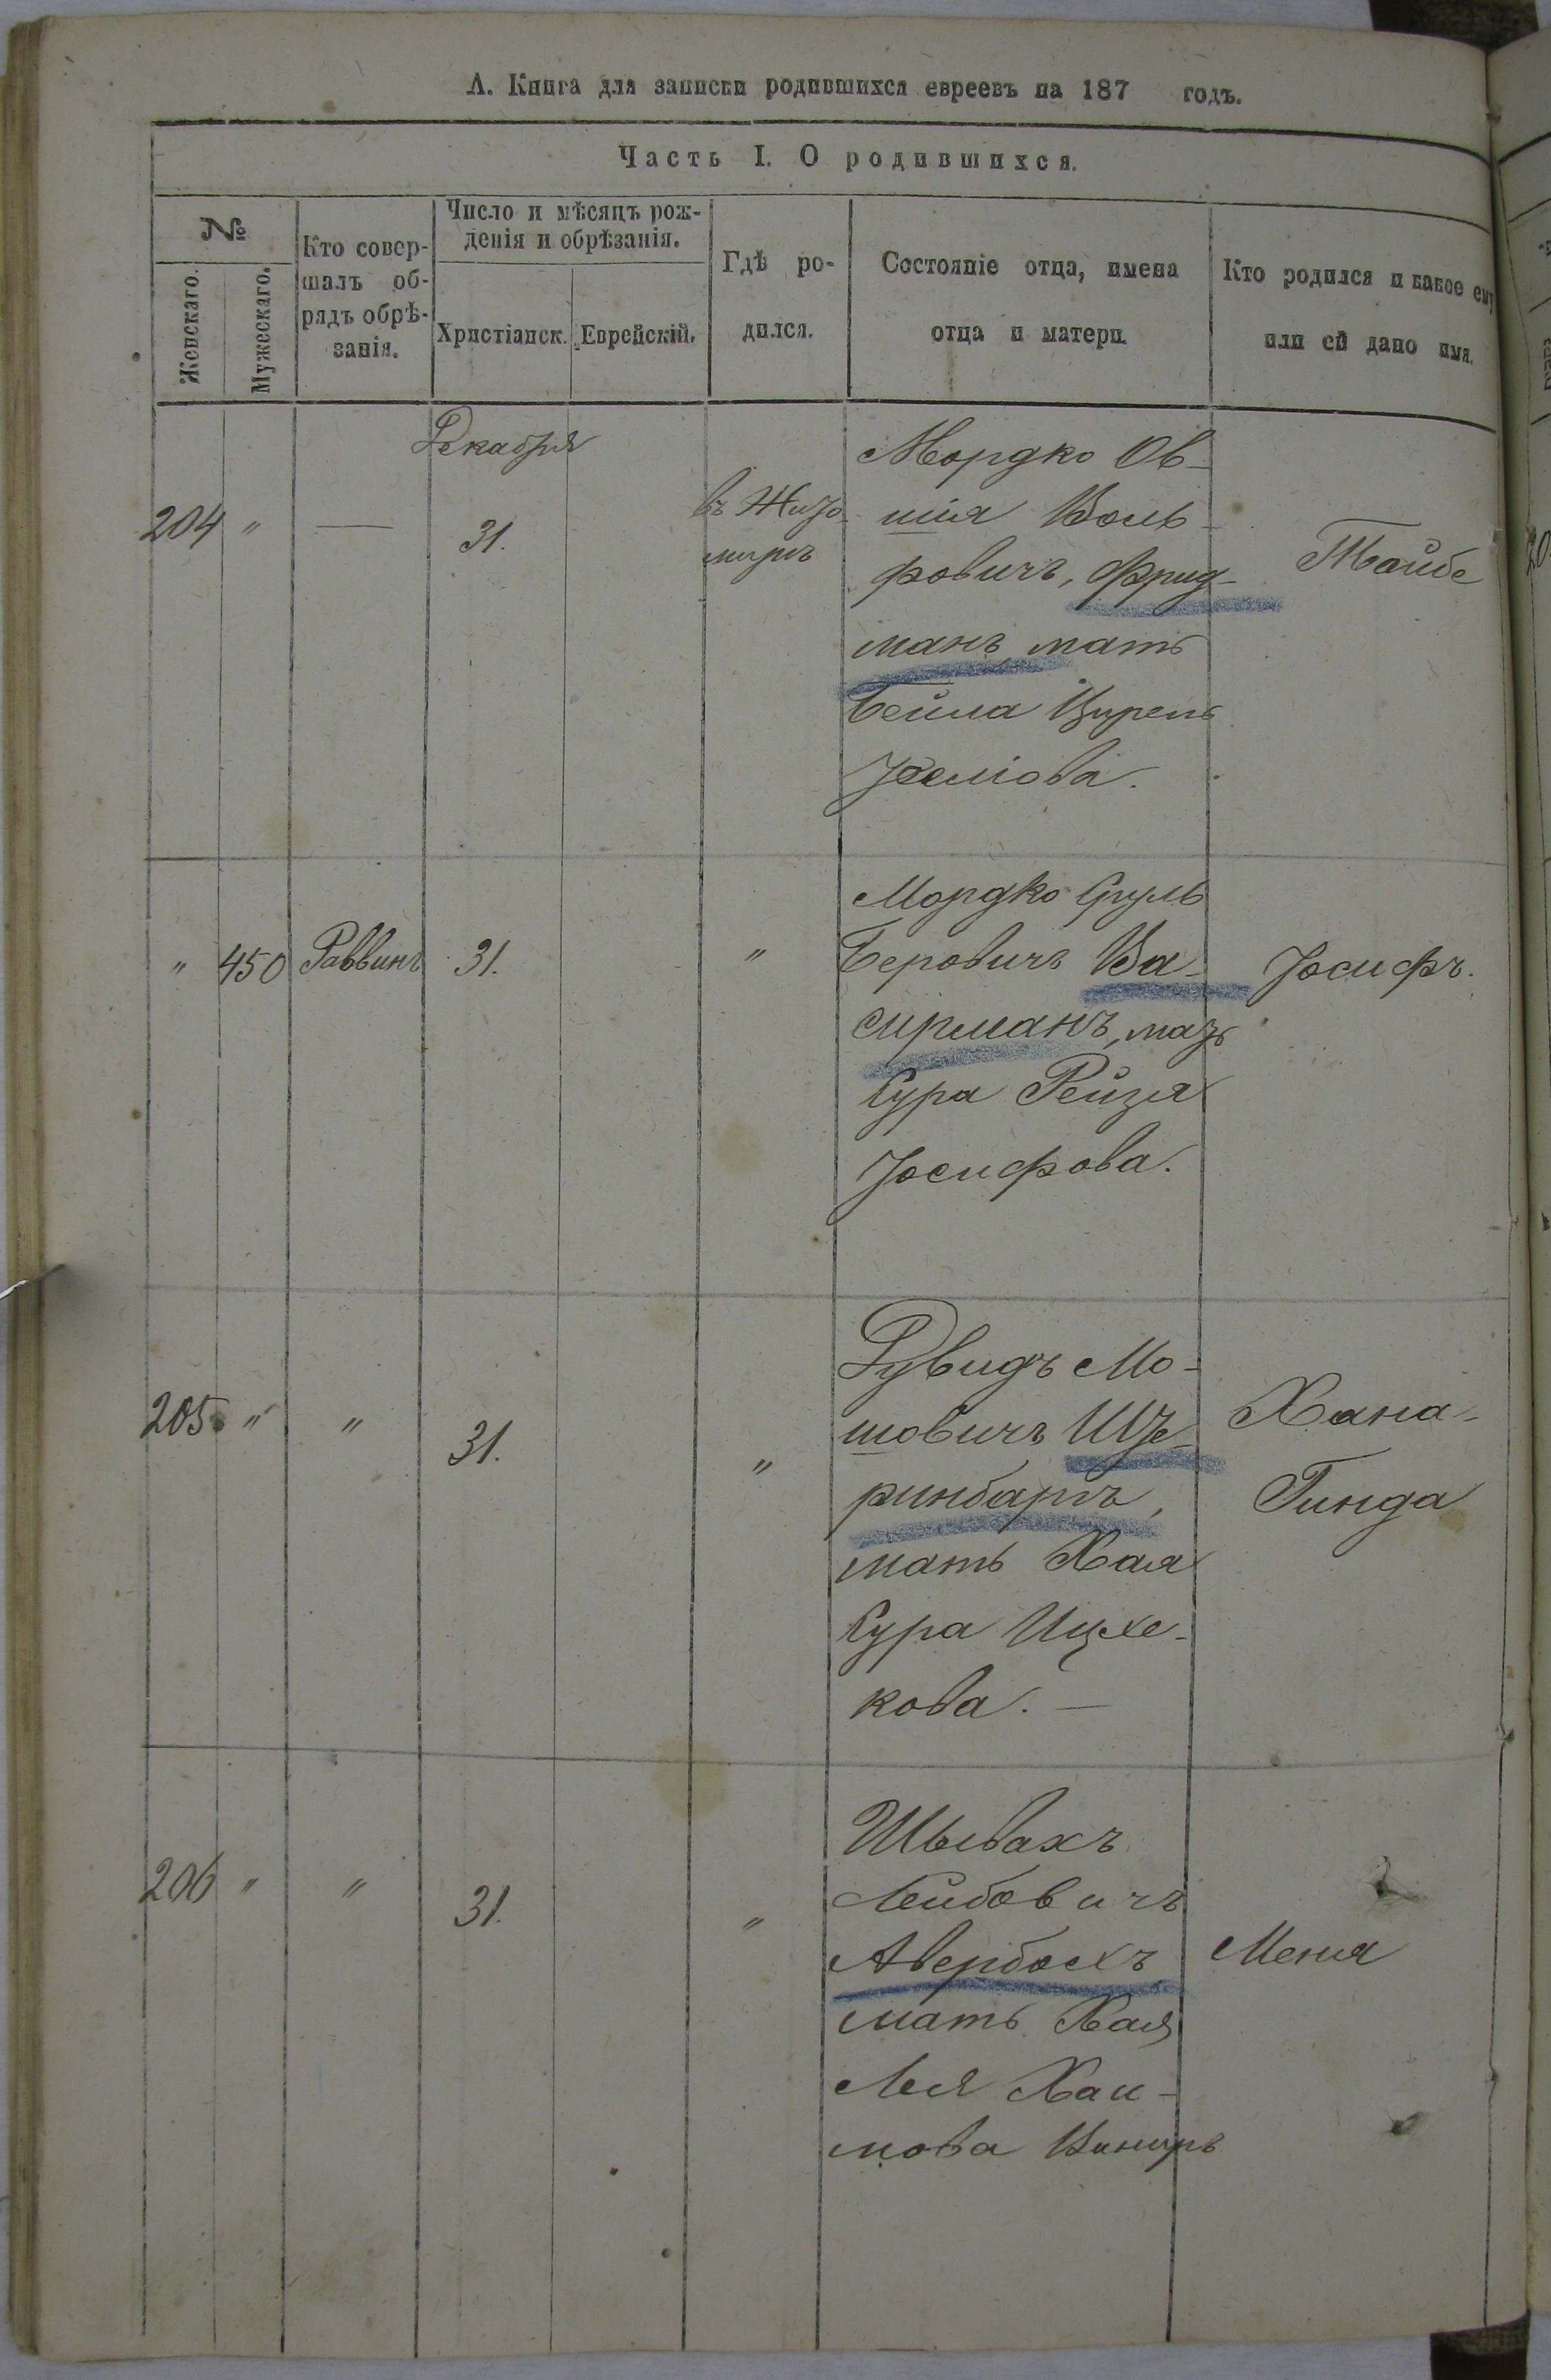 А. Книга для записки родившихся евреевъ на 187 годъ.
Часть I. О родившихся.
№
Женскаго.
Мужескаго.
Кто совер-
шалъ об-
рядъ обрѣ-
занія.
Число и мѣсяцъ рож-
денія и обрѣзанія.
Христіанск.
Еврейскій.
Гдѣ ро-
дился.
Состояніе отца, имена
отца и матери.
Кто родился и какое ему
или ей дано имя.
Декабря
204 " — 31.
въ Жито-
мирѣ
Мордко Ов-
шія Воль-
фовичъ, Фрид-
манъ, мать
Бейла Цирель
Тойбе
" 450 Раввинъ 31. "
Мордко Сруль
Беровичъ Ва-
сирманъ, мать
Сура Рейзя
Іосифова.
Іосифъ.
205 " " 31. "
Дувидъ Мо-
шовичъ Ште-
ринбаргъ,
мать Хая
Сура Ицхе-
кова. —
Хана-
Гинда
206 " " 31. "
Швахъ
Лейбовичъ
Авербохъ,
мать Хая
Лея Хаи-
мова
Меня